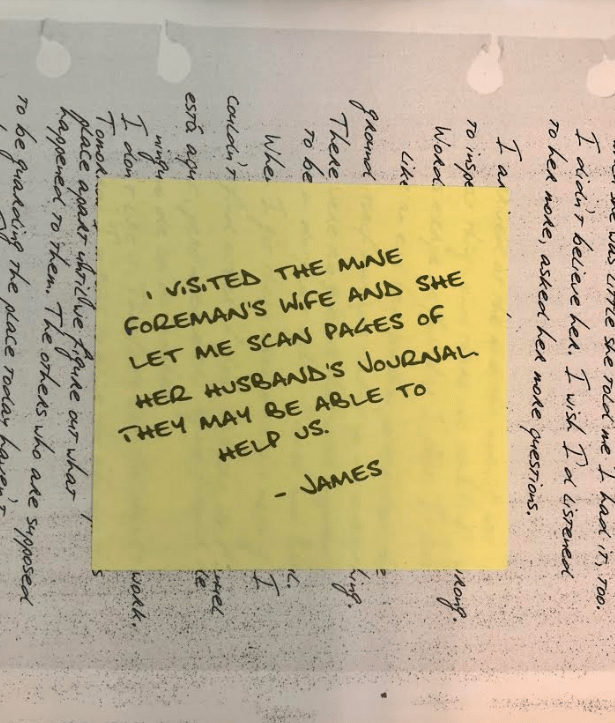 I VISITED THE MINE
FOREMAN'S WIFE AND SHE
LET ME SCAN PAGES OF
HER HUSBAND'S JOURNAL.
THEY MAY BE ABLE TO
HELP US.
- JAMES
she was little she told me I had it, too.
I didn't believe her. I wish I'd listened
to her more, asked her more questions.
I
to
Word
ground
There
to be
I
couldn't
está
I don't work.
place apart until we figure out what
happened to them. The others who are supposed
to be guarding the place today haven't